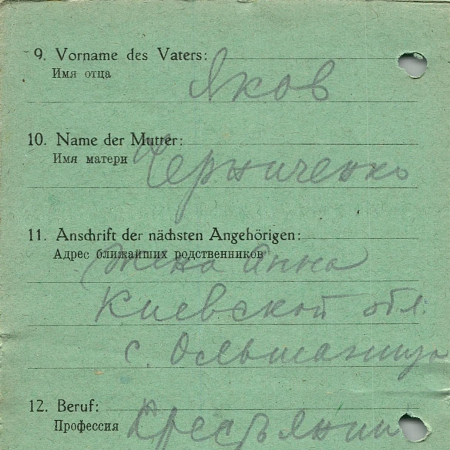 9. Vorname des Vaters:
Имя отца
Яков
10. Name der Mutter:
Имя матери
Черниченко
11. Anschrift der nächsten Angehörigen:
Адрес ближайших родственников
Жена Анна
Киевской обл.
с. Ольшаница
12. Beruf:
Профессия
Крестьянин